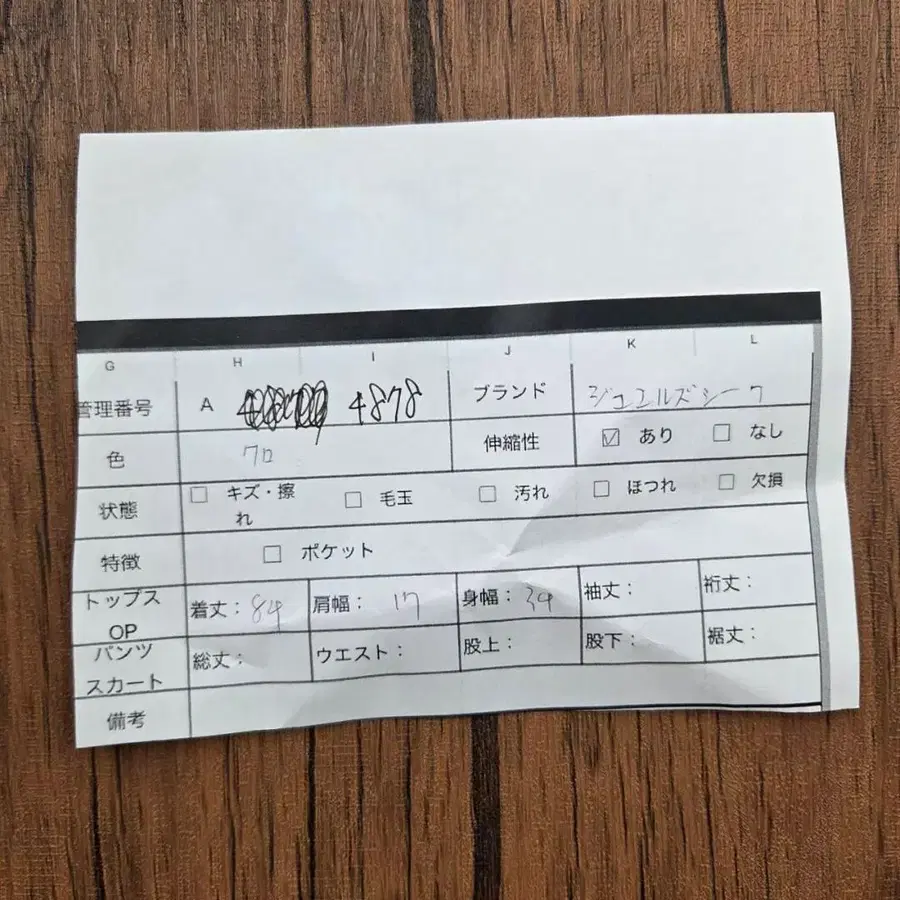 G H I J K L
管理番号 A 4878 ブランド ジュエルズシーク
色 クロ 伸縮性 ☑ あり ☐ なし
状態 ☐ キズ・擦れ ☐ 毛玉 ☐ 汚れ ☐ ほつれ ☐ 欠損
特徴 ☐ ポケット
トップス OP 着丈: 84 肩幅: 17 身幅: 34 袖丈: 裄丈:
パンツ スカート 総丈: ウエスト: 股上: 股下: 裾丈:
備考